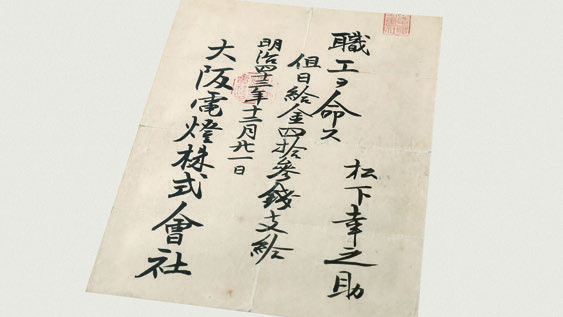 松下幸之助
職工ヲ命ス
但日給金四拾參錢支給
明治四十三年十二月廿一日
大阪電燈株式會社